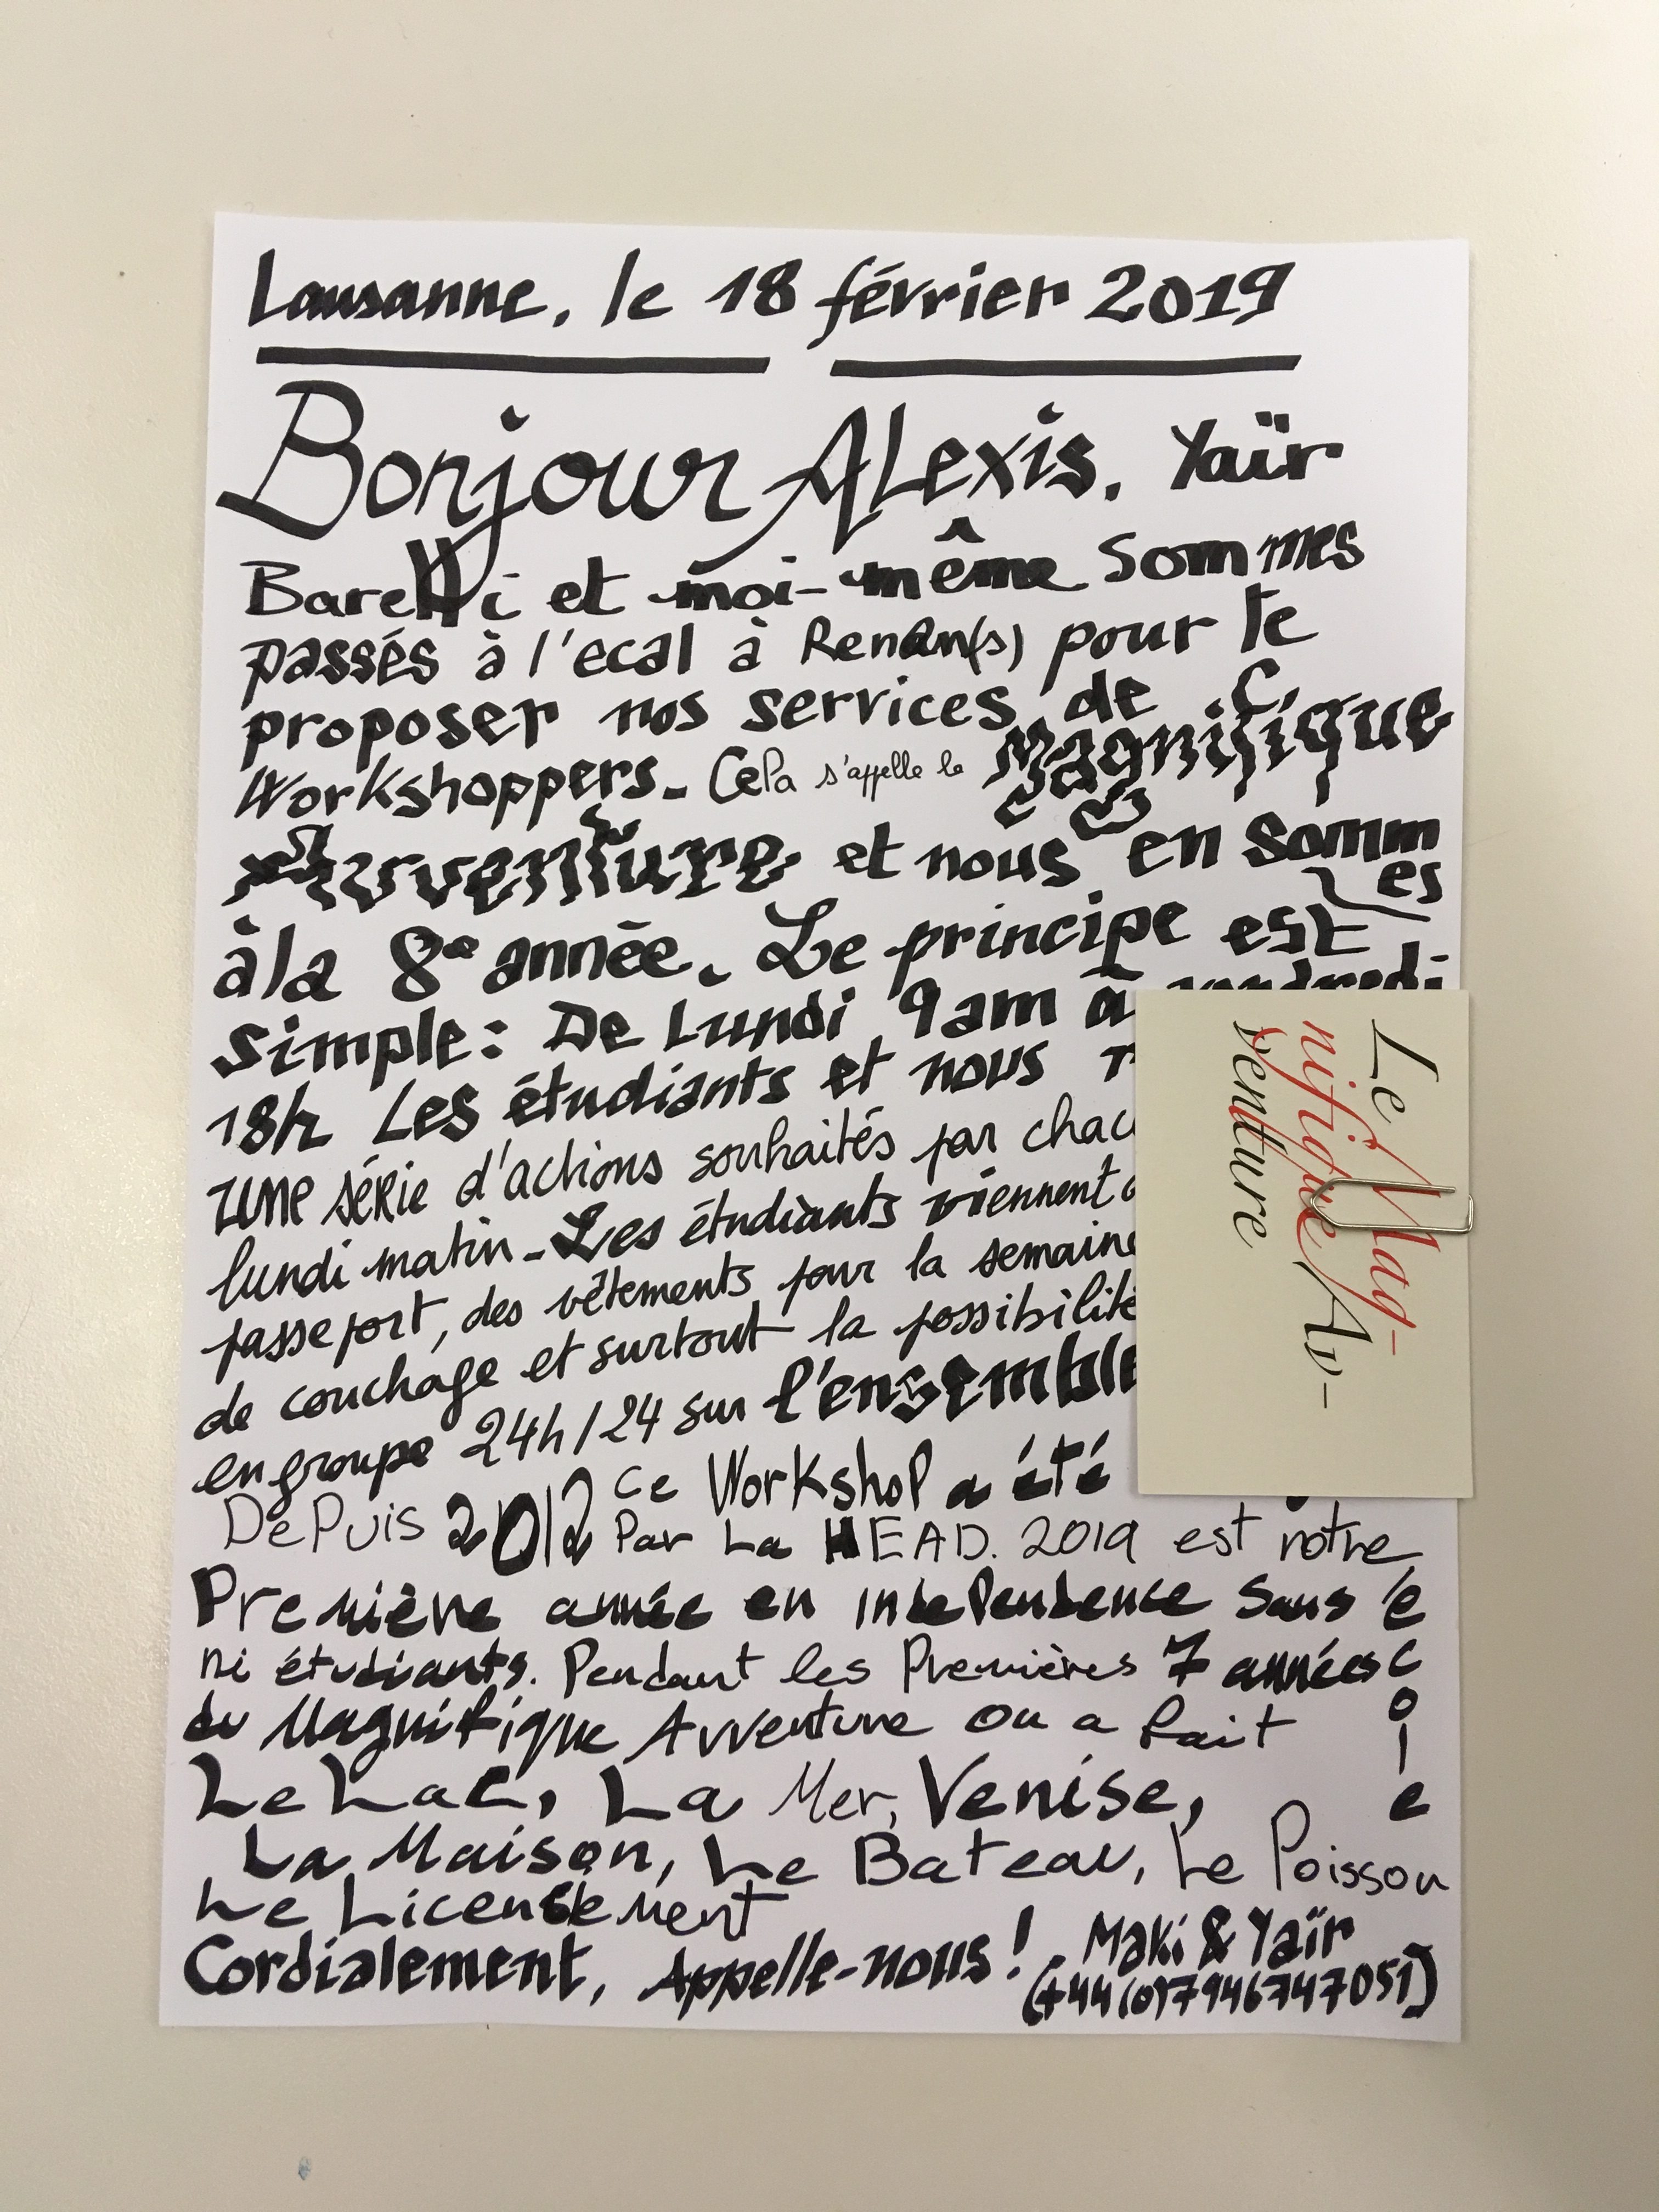 Lausanne, le 18 février 2019
Bonjour Alexis. Yaïr
Barelli et moi-même sommes
passés à l'ecal à Renan(s) pour te
proposer nos services de
Workshoppers. Cela s'appelle le Magnifique
Avventure et nous en sommes
à la 8e année. Le principe est
simple: De Lundi 9am à vendredi
18h Les étudiants et nous
une série d'actions souhaités par
lundi matin. Les étudiants viennent
passeport, des vêtements pour la semaine
de couchage et surtout la possibilité
en groupe 24h/24 sur l'ensemble
Depuis 2012 ce Workshop a été
Par La HEAD. 2019 est notre
Première année en independence sans école
ni étudiants. Pendant les Premières 7 années
du Magnifique Avventure on a fait
Le Lac, La Mer, Venise,
La Maison, Le Bateau, Le Poisson
Le Licenciement
Cordialement, Appelle-nous! Maki & Yaïr
(+44(0)7946747051)
Le Mag-
nifique Av-
venture